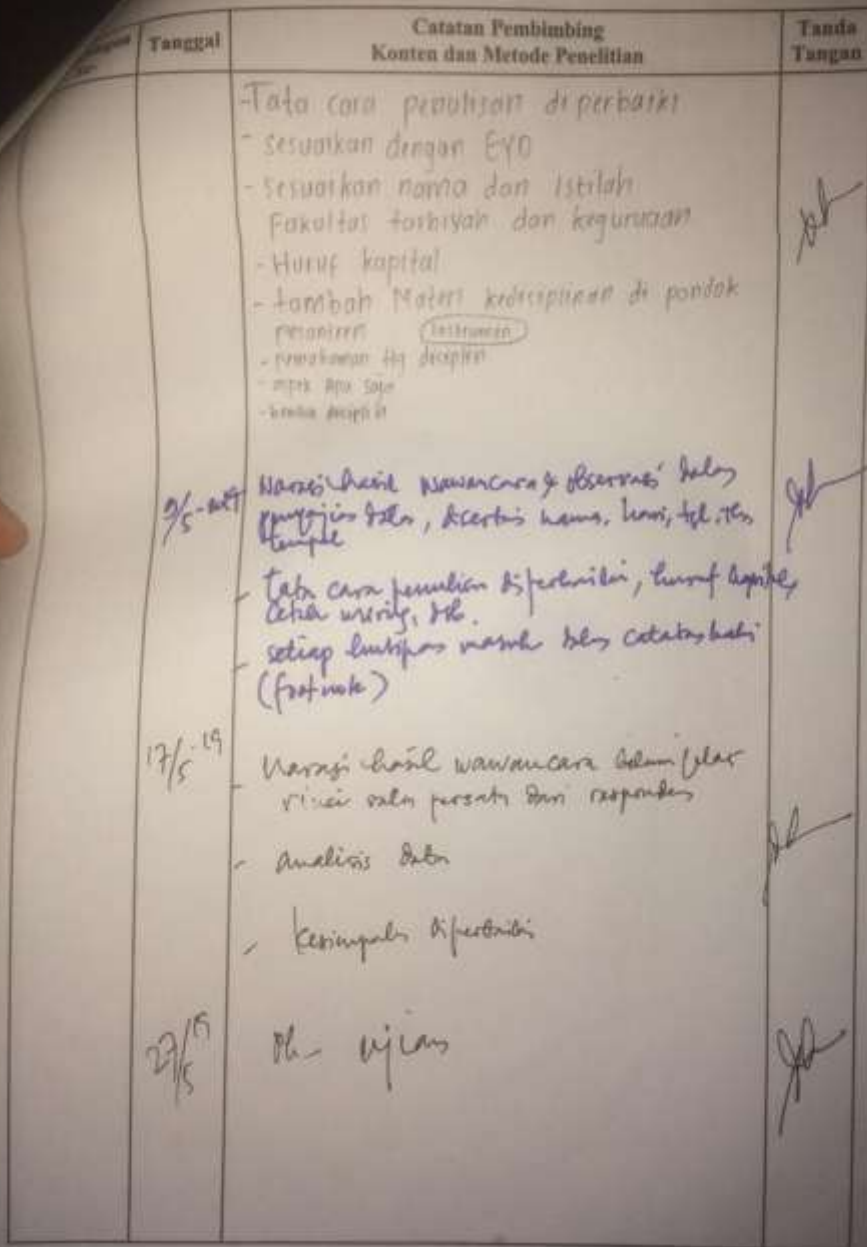 Tanggal
Catatan Pembimbing
Konten dan Metode Penelitian
Tanda
Tangan
-Tata cara penulisan diperbaiki
- sesuaikan dengan EYD
- sesuaikan nama dan istilah
Fakultas tarbiyah dan keguruan
- Huruf kapital
- tambah Materi kedisciplinan di pondok
pesantren (instrumen)
- pemahaman ttg disciplin
- aspek apa saja
9/5
Narasi hasil wawancara & observasi dalam
penyajian data, disertai nama, hari, tgl,
tempat
- tata cara penulisan diperbaiki, huruf capital,
cetak miring, dll.
- setiap kutipan masuk dlm catatan kaki
(foot note)
17/5-19
- Narasi hasil wawancara belum jelas
rinci satu persatu dari responden
- analisis data
- Kesimpulan diperbaiki
27/5 19
Ok - ujian